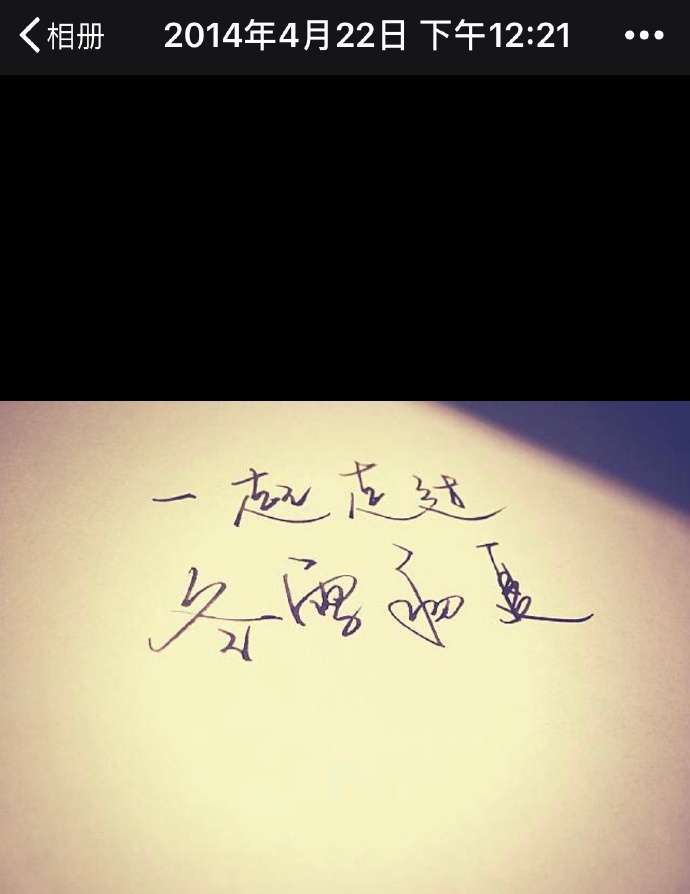 相册 2014年4月22日 下午12:21
一起走过
冬雪初夏